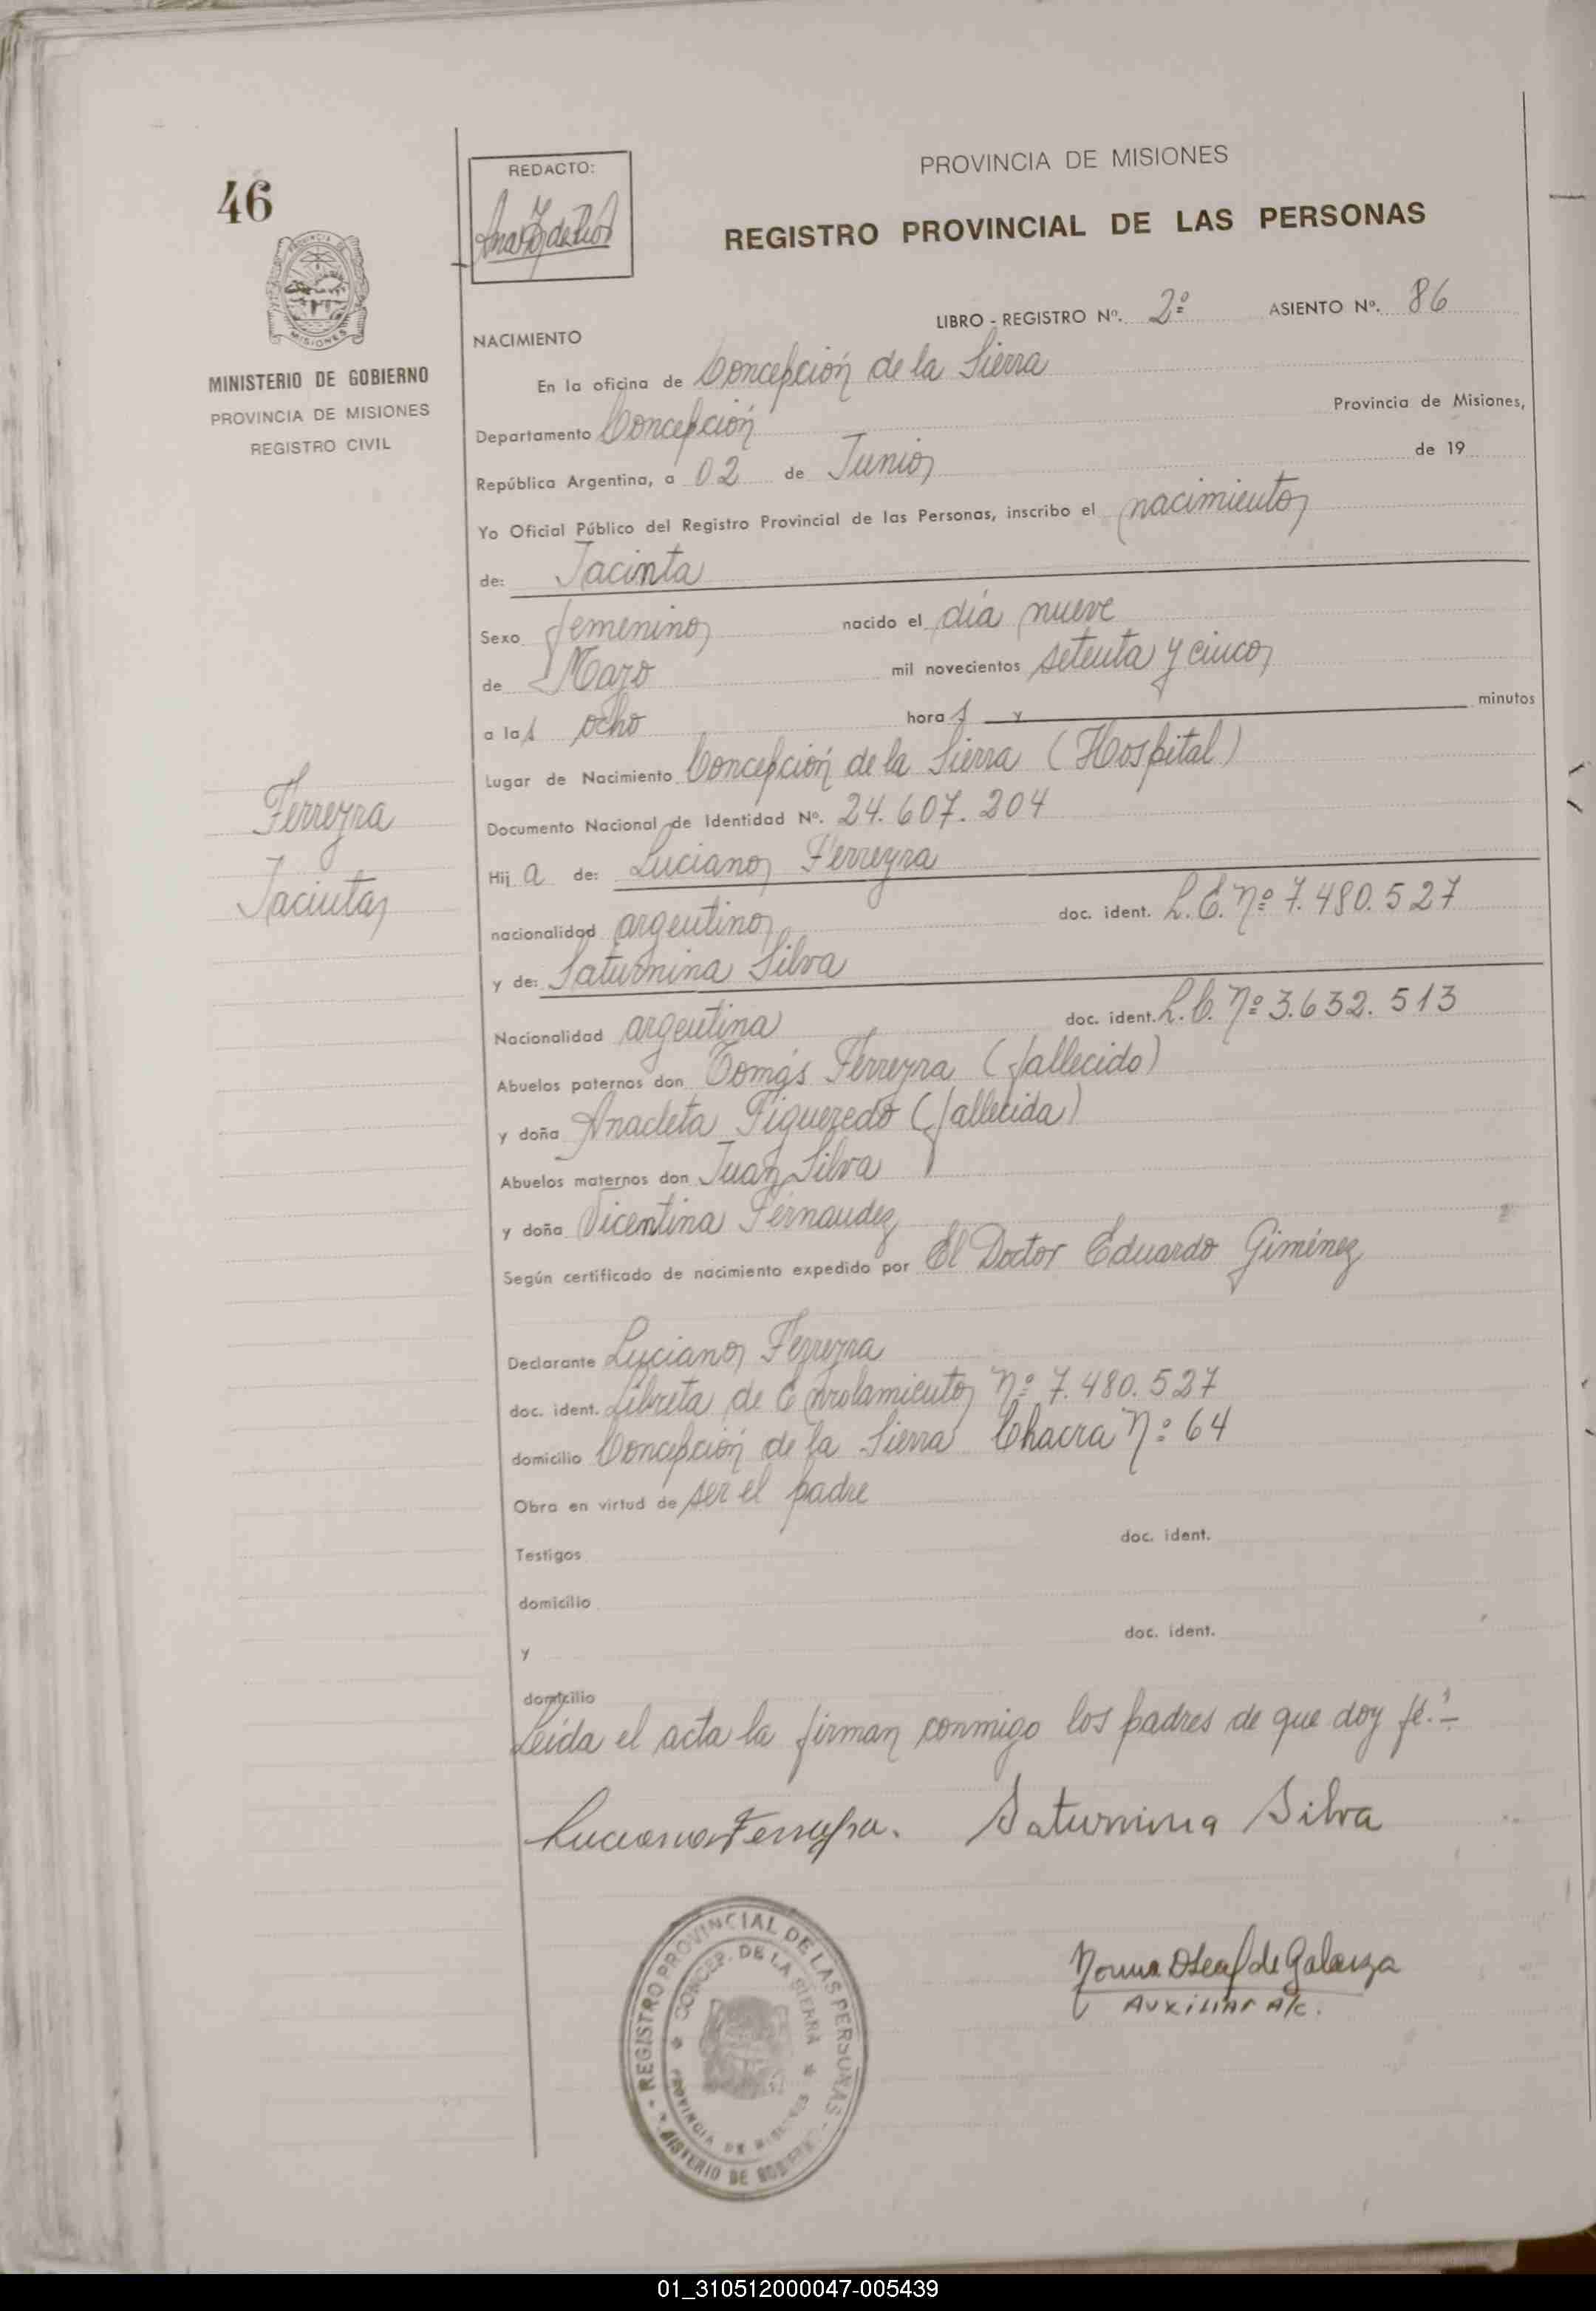 46
REDACTO:
PROVINCIA DE MISIONES
REGISTRO PROVINCIAL DE LAS PERSONAS
LIBRO - REGISTRO Nº. 2º ASIENTO Nº. 86
MISIONES
MINISTERIO DE GOBIERNO
PROVINCIA DE MISIONES
REGISTRO CIVIL
NACIMIENTO
En la oficina de Concepción de la Sierra
Departamento Concepción Provincia de Misiones,
República Argentina, a 02 de Junio de 19
Yo Oficial Público del Registro Provincial de las Personas, inscribo el nacimiento
de: Jacinta
Sexo femenino nacido el día nueve
de Mayo mil novecientos setenta y cinco
a las ocho horas y minutos
Lugar de Nacimiento Concepción de la Sierra (Hospital)
Documento Nacional de Identidad Nº. 24.607.204
Ferreyra
Jacinta
Hij a de: Luciano Ferreyra
nacionalidad argentino doc. ident. L.E. nº 7.480.527
y de: Saturnina Silva
Nacionalidad argentina doc. ident. L.C. nº 3.632.513
Abuelos paternos don Tomás Ferreyra (fallecido)
y doña Anacleta Figueredo (fallecida)
Abuelos maternos don Juan Silva
y doña Vicentina Fernandez
Según certificado de nacimiento expedido por El Doctor Eduardo Giménez
Declarante Luciano Ferreyra
doc. ident. Libreta de Enrolamiento nº 7.480.527
domicilio Concepción de la Sierra Chacra nº 64
Obra en virtud de ser el padre
Testigos doc. ident.
domicilio
y doc. ident.
domicilio
Leída el acta la firman conmigo los padres de que doy fé.-
Luciano Ferreyra. Saturnina Silva
REGISTRO PROVINCIAL DE LAS PERSONAS
CONCEP. DE LA SIERRA
PROVINCIA DE MISIONES
MINISTERIO DE GOBIERNO
Norma de Galarza
AUXILIAR A/C.
01_310512000047-005439